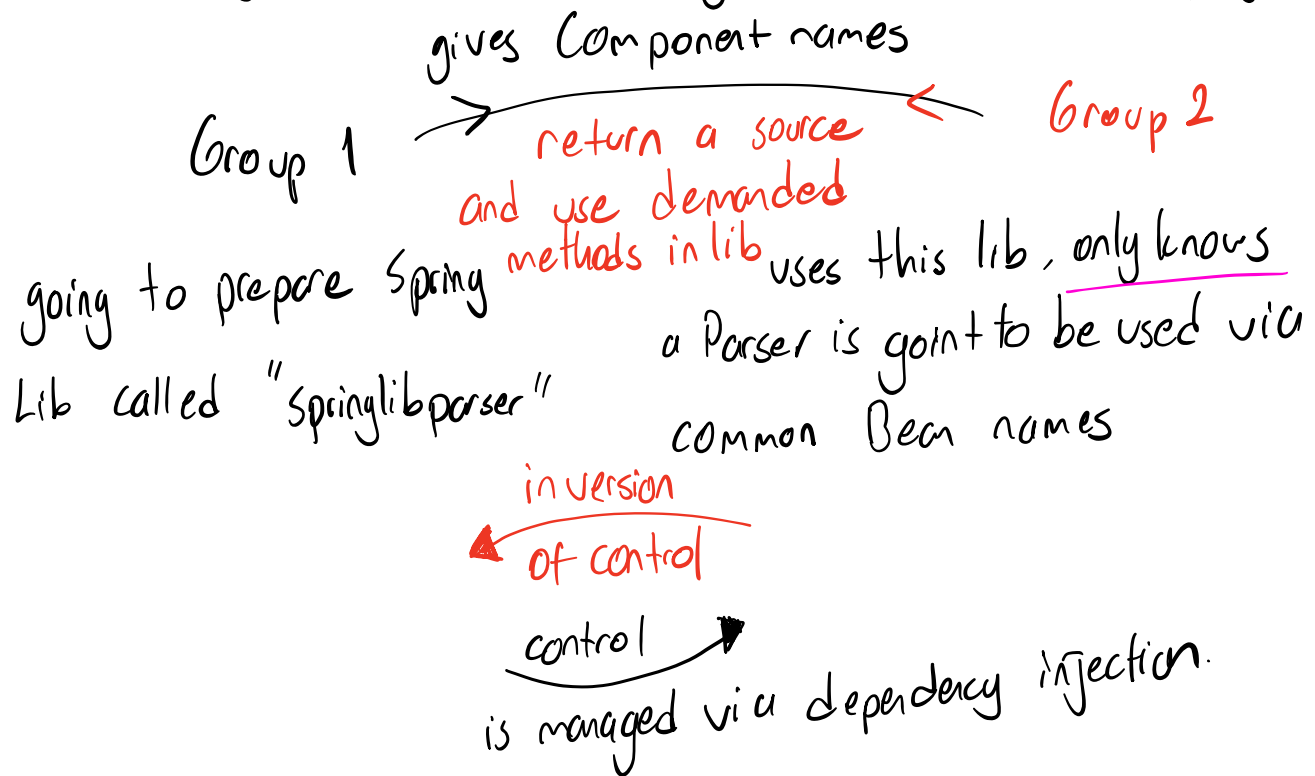 gives Component names
Group 1
Group 2
return a source
and use demanded
methods in lib
going to prepare Spring
Lib called "springlibparser"
uses this lib, only knows
a Parser is goint to be used via
common Bean names
inversion
of control
control
is managed via dependency injection.